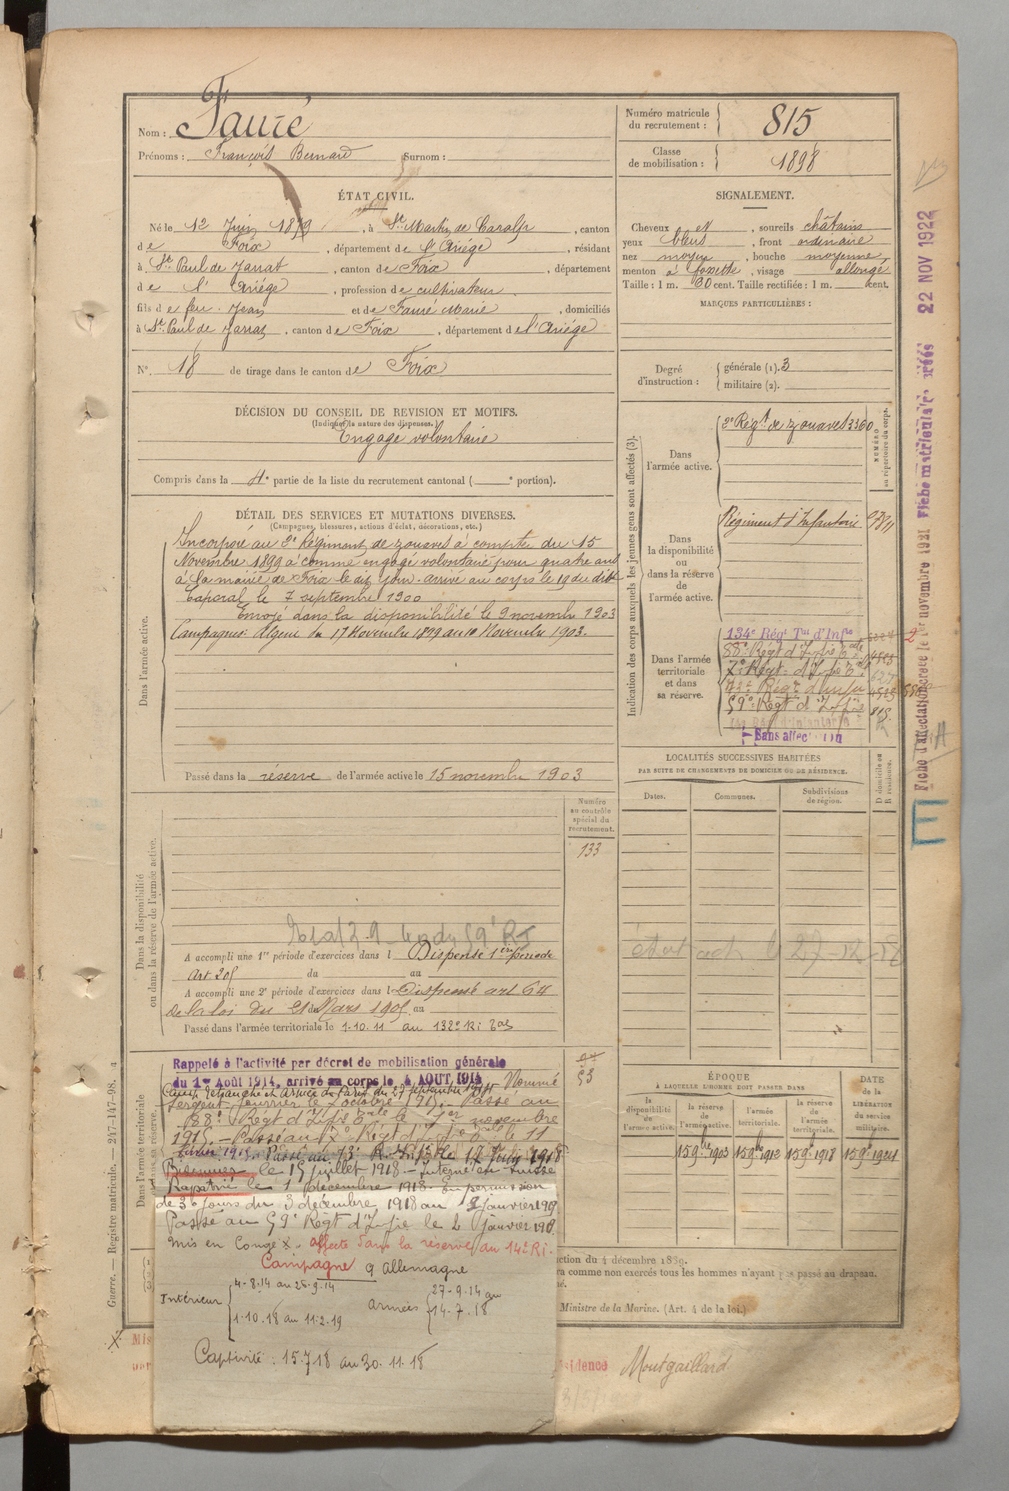 Nom : Fauré
Prénoms : François Bernard Surnom :
Numéro matricule du recrutement : 815
Classe de mobilisation : 1898
ÉTAT CIVIL.
Né le 12 Juin 1879, à St Martin de Caralp, canton
de Foix, département de l'Ariége, résidant
à St Paul de Jarrat, canton de Foix, département
de l'Ariége, profession de cultivateur
fils de feu Jean et de Faure Marie, domiciliés
à St Paul de Jarrat, canton de Foix, département de l'Ariége
N° 18 de tirage dans le canton de Foix
SIGNALEMENT.
Cheveux et, sourcils châtains
yeux bleus, front ordinaire
nez moyen, bouche moyenne
menton à fossette, visage allongé
Taille : 1 m. 60 cent. Taille rectifiée : 1 m. cent.
MARQUES PARTICULIÈRES :
Degré d'instruction : générale (1). 3
militaire (2).
DÉCISION DU CONSEIL DE REVISION ET MOTIFS.
(Indiquer la nature des dispenses.)
Engagé volontaire
Compris dans la 4e partie de la liste du recrutement cantonal ( e portion).
DÉTAIL DES SERVICES ET MUTATIONS DIVERSES.
(Campagnes, blessures, actions d'éclat, décorations, etc.)
Dans l'armée active.
Incorporé au 2e Régiment de zouaves à compter du 15
Novembre 1899 comme engagé volontaire pour quatre ans
à la mairie de Foix le dit jour. arrivé au corps le 19 du dit
Caporal le 7 septembre 1900
Envoyé dans la disponibilité le 9 novembre 1903
Campagnes: Algerie du 17 Novembre 1899 au 10 Novembre 1903.
Passé dans la réserve de l'armée active le 15 novembre 1903
Indication des corps auxquels les jeunes gens sont affectés (3).
NUMÉRO au répertoire du corps.
Dans l'armée active.
2e Régt de zouaves 3360
Dans la disponibilité ou dans la réserve de l'armée active.
Régiment d'Infanterie
Dans l'armée territoriale et dans sa réserve.
134e Régt Tal d'Infie
88e Régt d'Infie
7e Régt d'Infie
59e Régt d'Infie 815
Sans affectation
LOCALITÉS SUCCESSIVES HABITÉES
PAR SUITE DE CHANGEMENTS DE DOMICILE OU DE RÉSIDENCE.
Dates.
Communes.
Subdivisions de région.
D domicile ou R résidence.
Numéro au contrôle spécial du recrutement.
133
Dans la disponibilité ou dans la réserve de l'armée active.
A accompli une 1re période d'exercices dans l Dispensé 1ère période
du au
A accompli une 2e période d'exercices dans l Dispensé art 64
de la loi du 21 Mars 1905 au
Passé dans l'armée territoriale le 1-10-11 au 132e
Dans l'armée territoriale et dans sa réserve.
Rappelé à l'activité par décret de mobilisation générale
du 1er Août 1914, arrivé au corps le 4 AOUT 1914 Nommé
sergent fourrier le 2 octobre 1915. Passé au
88e Régt d'Infie le 1er novembre
1915. Passé au 7e Régt d'Infie le 11
février 1915. Passé au
le 15 juillet 1918 - Interné en Suisse
Rapatrié le 1 décembre 1918. En permission
de 30 jours du 3 décembre 1918 au 2 janvier 1919
Passé au 59e Régt d'Infie le 2 janvier 191
mis en Congé X. affecté dans la réserve au 14e RI.
Campagne c Allemagne
Intérieur 4-8-14 au 26-9-14
1-10-18 au 11-2-19
Armées 27-9-14 au
14-7-18
Captivité : 15-7-18 au 30-11-18
ÉPOQUE
À LAQUELLE L'HOMME DOIT PASSER DANS
la disponibilité de l'armée active.
la réserve de l'armée active.
l'armée territoriale.
la réserve de l'armée territoriale.
DATE de la LIBÉRATION du service militaire.
15 9bre 1903
15 9bre 1912
15 9bre 1918
15 9bre 1924
ction du 4 décembre 1889.
comme non exercés tous les hommes n'ayant pas passé au drapeau.
Ministre de la Marine. (Art. 4 de la loi.)
sidence Montgaillard
Guerre. — Registre matricule. — 247-147-98.
Fiche d'affectation créée le 1er novembre 1921 Fiche matricule créée 22 NOV 1922
E